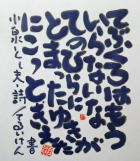 てぶくろはもう
いらないな
てのひらに
とまったゆきが
にこっときえた
小泉とし夫・詩 てるいけん 書